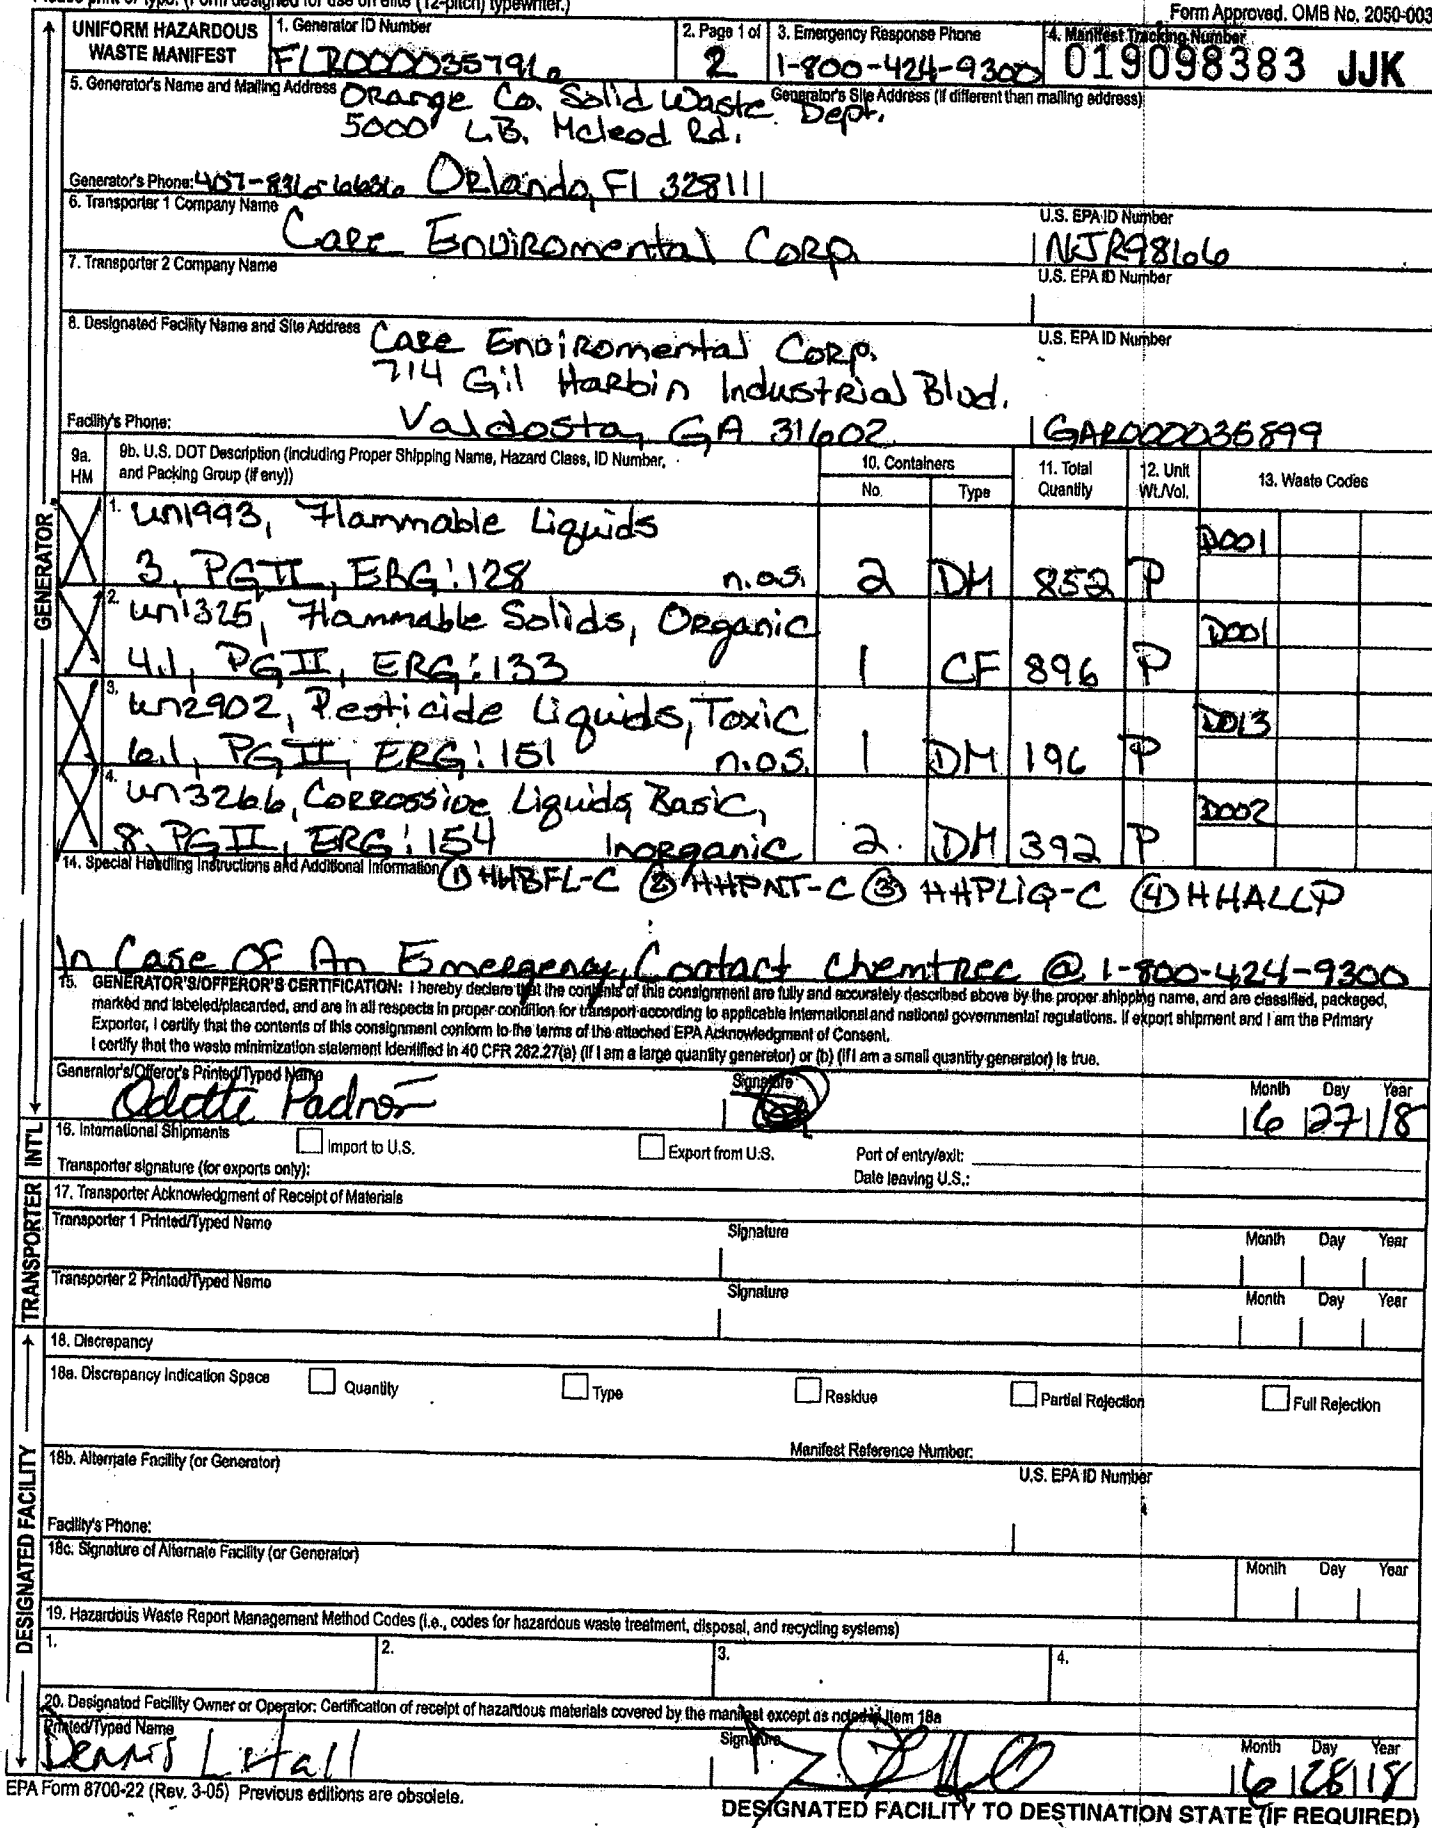 Please print or type. (Form designed for use on elite (12-pitch) typewriter.)
Form Approved. OMB No. 2050-003
UNIFORM HAZARDOUS WASTE MANIFEST
1. Generator ID Number
FLR000035791
2. Page 1 of
2
3. Emergency Response Phone
1-800-424-9300
4. Manifest Tracking Number
019098383 JJK
5. Generator's Name and Mailing Address Orange Co. Solid Waste Dept.
Generator's Site Address (if different than mailing address)
5000 L.B. Mcleod Rd.
Generator's Phone: 407-836-6636 Orlando, Fl 328111
6. Transporter 1 Company Name
Care Enviromental Corp.
U.S. EPA ID Number
NJR98166
7. Transporter 2 Company Name
U.S. EPA ID Number
8. Designated Facility Name and Site Address Care Enviromental Corp.
U.S. EPA ID Number
714 Gil Harbin Industrial Blvd.
Facility's Phone:
Valdosta, GA 31602
GAR000035899
9a. HM
9b. U.S. DOT Description (including Proper Shipping Name, Hazard Class, ID Number, and Packing Group (if any))
10. Containers
No.
Type
11. Total Quantity
12. Unit Wt./Vol.
13. Waste Codes
1. un1993, Flammable Liquids
3, PG II, ERG:128 n.o.s. 2 DM 852 P D001
2. un1325, Flammable Solids, Organic
4.1, PG II, ERG:133 1 CF 896 P D001
3. un2902, Pesticide Liquids, Toxic
6.1, PG II, ERG:151 n.o.s. 1 DM 196 P D013
4. un3266, Corrossive Liquids, Basic,
8, PG II, ERG:154 Inorganic 2 DM 392 P D002
14. Special Handling Instructions and Additional Information ① HHBFL-C ② HHPNT-C ③ HHPLIQ-C ④ HHALLP
In Case Of An Emergency, Contact Chemtrec @ 1-800-424-9300
15. GENERATOR'S/OFFEROR'S CERTIFICATION: I hereby declare that the contents of this consignment are fully and accurately described above by the proper shipping name, and are classified, packaged,
marked and labeled/placarded, and are in all respects in proper condition for transport according to applicable international and national governmental regulations. If export shipment and I am the Primary
Exporter, I certify that the contents of this consignment conform to the terms of the attached EPA Acknowledgment of Consent.
I certify that the waste minimization statement identified in 40 CFR 262.27(a) (if I am a large quantity generator) or (b) (if I am a small quantity generator) is true.
Generator's/Offeror's Printed/Typed Name
Signature
Month Day Year
Odette Padron
6 27 18
16. International Shipments
Import to U.S.
Export from U.S.
Port of entry/exit:
Transporter signature (for exports only):
Date leaving U.S.:
17. Transporter Acknowledgment of Receipt of Materials
Transporter 1 Printed/Typed Name
Signature
Month Day Year
Transporter 2 Printed/Typed Name
Signature
Month Day Year
18. Discrepancy
18a. Discrepancy Indication Space
Quantity
Type
Residue
Partial Rejection
Full Rejection
Manifest Reference Number:
18b. Alternate Facility (or Generator)
U.S. EPA ID Number
Facility's Phone:
18c. Signature of Alternate Facility (or Generator)
Month Day Year
19. Hazardous Waste Report Management Method Codes (i.e., codes for hazardous waste treatment, disposal, and recycling systems)
1.
2.
3.
4.
20. Designated Facility Owner or Operator: Certification of receipt of hazardous materials covered by the manifest except as noted in Item 18a
Printed/Typed Name
Signature
Month Day Year
Dennis L Hall
6 28 18
EPA Form 8700-22 (Rev. 3-05) Previous editions are obsolete.
DESIGNATED FACILITY TO DESTINATION STATE (IF REQUIRED)
GENERATOR
INT'L
TRANSPORTER
DESIGNATED FACILITY